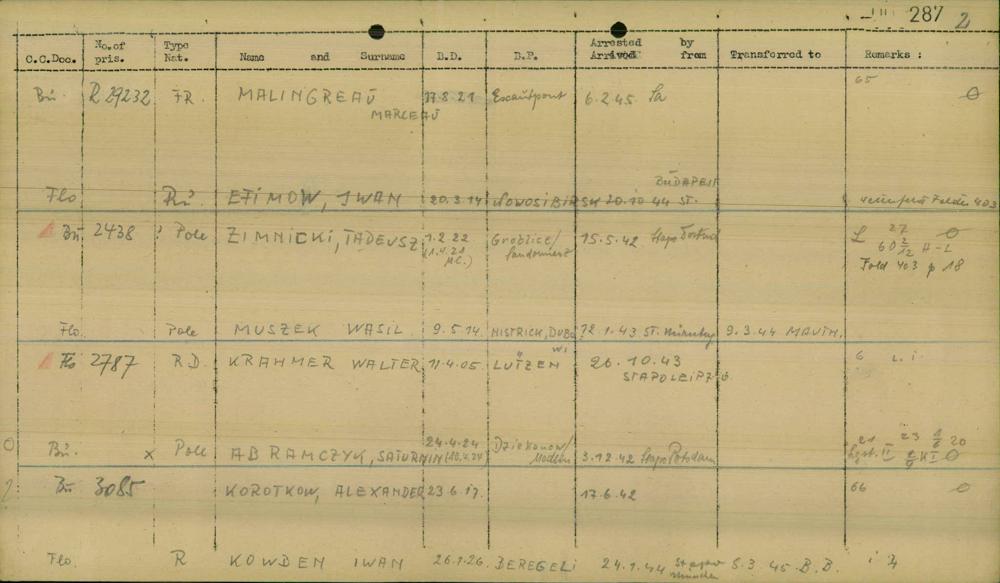 287 2
C.C.Doc. No.of pris. Type Nat. Name and Surname B.D. B.P. Arrested by Arrived from Transferred to Remarks :
65
Bu. R 29232 FR. MALINGREAU 17.8.21 Escautpont 6.2.45 Pa
MARCEAU
BUDAPEST
Flo Ru. EFIMOW, IWAN 20.3.14 NOVOSIBIRSK 20.10 44 ST. 403
Bu 2438 ? Pole ZIMNICKI, TADEUSZ 1.2.22 15.5.42 Stapo L 27
60 2/12 H-L
Fold 403 p 18
Flo. Pole MUSZEK WASIL 9.5.14. MISTRICK, DUBO 12.1.43 ST. Nürnbg 9.3.44 MAUTH.
WI
Flo 2787 R.D. KRAHMER WALTER 11.4.05 LÜTZEN 26.10.43 6 L. i.
STAPO LEIPZG
Bu. x Pole ABRAMCZYK, SATURNIN 24.4.24 Dziekanow/ 3.12.42 Stapo Potsdam 21 23 20
Modlin
Bu 3085 KOROTKOW, ALEXANDER 23.6.17. 17.6.42 66
Flo. R KOWDEN IWAN 26.1.26. BEREGELI 24.1.44 Stapo München 5.3.45 B.B.